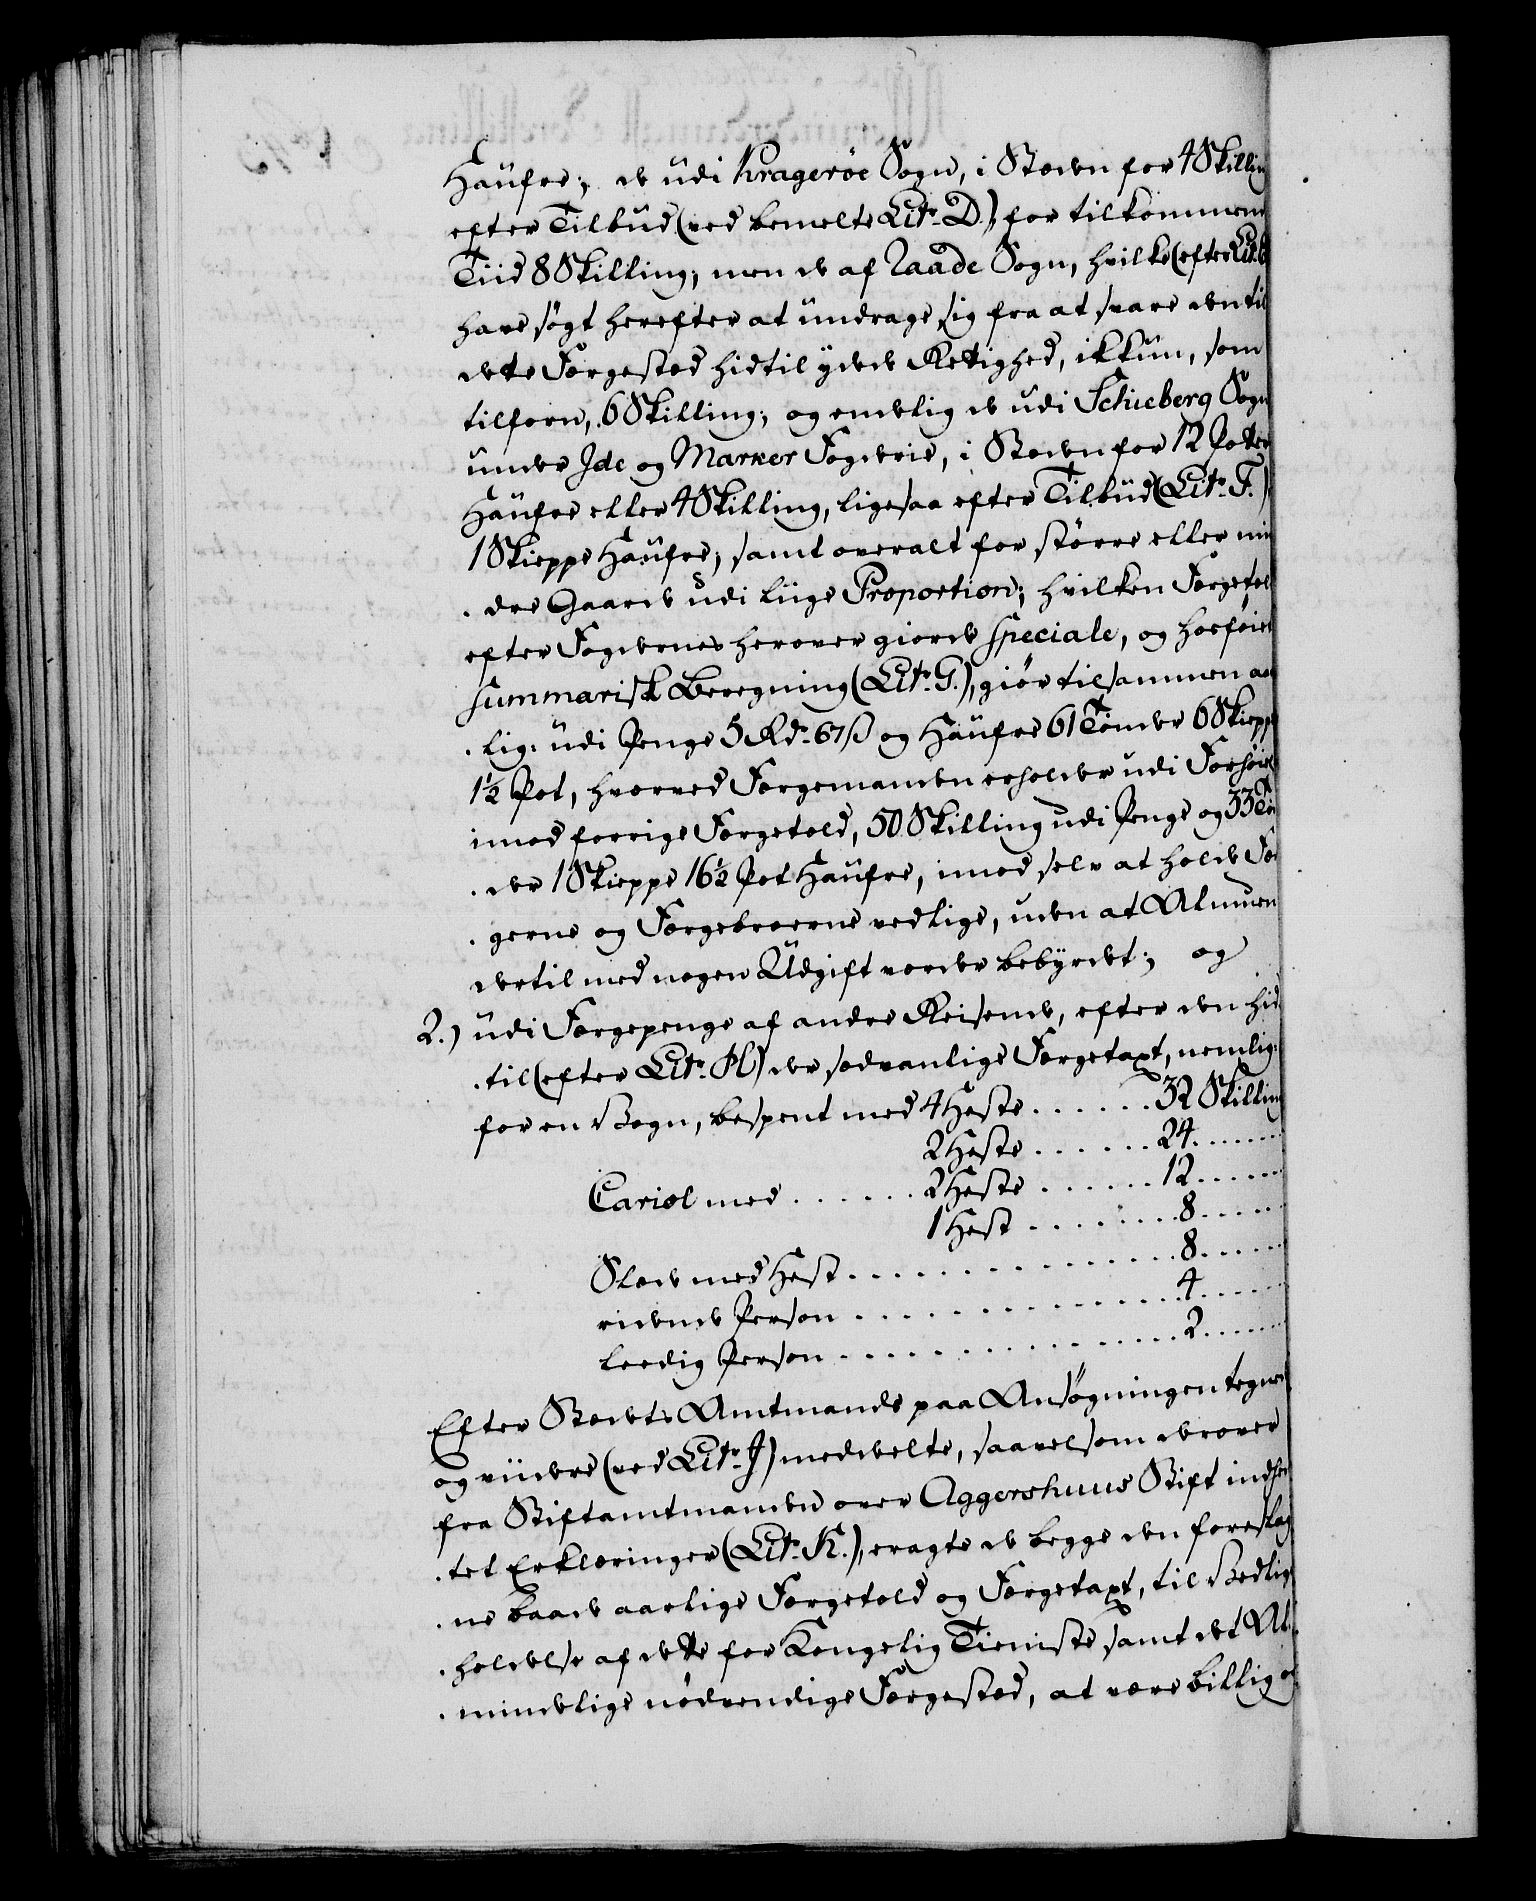 Haufre; de udi Kragerøe Sogn, i Steden for 4 Skilling
efter Tilbud (ved bemelte Litr. D.) for tilkommende
Tiid 8 Skilling; men de af Raade Sogn, hvilke (efter Litr.
have søgt herefter at undrage sig fra at svare den til
dette Færgested hidtil ÿdede Rettighed, ikkun, som
tilforn, 6 Skilling; og endelig de udi Schieberg Sogn
under Jde og Marker Fogderie, i Steden for 12 Potter
Haufre eller 4 Skilling, ligesaa efter Tilbud (Litr. F.)
1 Skieppe Haufre; samt overalt for større eller min
dre Gaarde udi liige Proportion; hvilken Færgetold
efter Fogdernes herover giorde speciale, og hosføiede
summarisk Beregning (Litr. G.), giør tilsammen aar
lig udi Penge 5 Rdr. 67 ß og Haufre 61 Tønder 6 Skiepper
1½ Pot, hvorved Færgemanden erholder udi Forhøielse
imod forrige Færgetold, 50 Skilling udi Penge og 33 Tøn
der 1 Skieppe 16½ Pot Haufre, imod selv at holde Fær
gerne og Færgebroerne vedlige, uden at Almuen
dertil med nogen Udgift vorder bebyrdet; og
2.) udi Færgepenge af andre Reisende, efter den hid
til (efter Litr. H) der sædvanlige Færgetaxt, nemlig:
for en Vogn, bespent med 4 Heste . . . . . . 32 Skilling
2 Heste . . . . . . 24 . . . . . .
Cariol med . . . . . . 2 Heste . . . . . . 12 . . . . . .
1 Hest . . . . . . 8 . . . . . .
Slæde med Hest . . . . . . 8 . . . . . .
ridende Person . . . . . . 4 . . . . . .
leedig Person . . . . . . 2 . . . . . .
Efter Stedets Amtmands paa Ansøgningen tegnede
og viidere (ved Litr. J) meddeelte, saavelsom derover
fra Stiftamtmanden over Aggershuus Stift indhen
tet Erklæringer (Litr. K.), eragte de begge den foreslag
ne baade aarlige Færgetold og Færgetaxt, til Vedlige
holdelse af dette for Kongelig Tieniste samt det Al
mindelige nødvendige Færgested, at være billig og